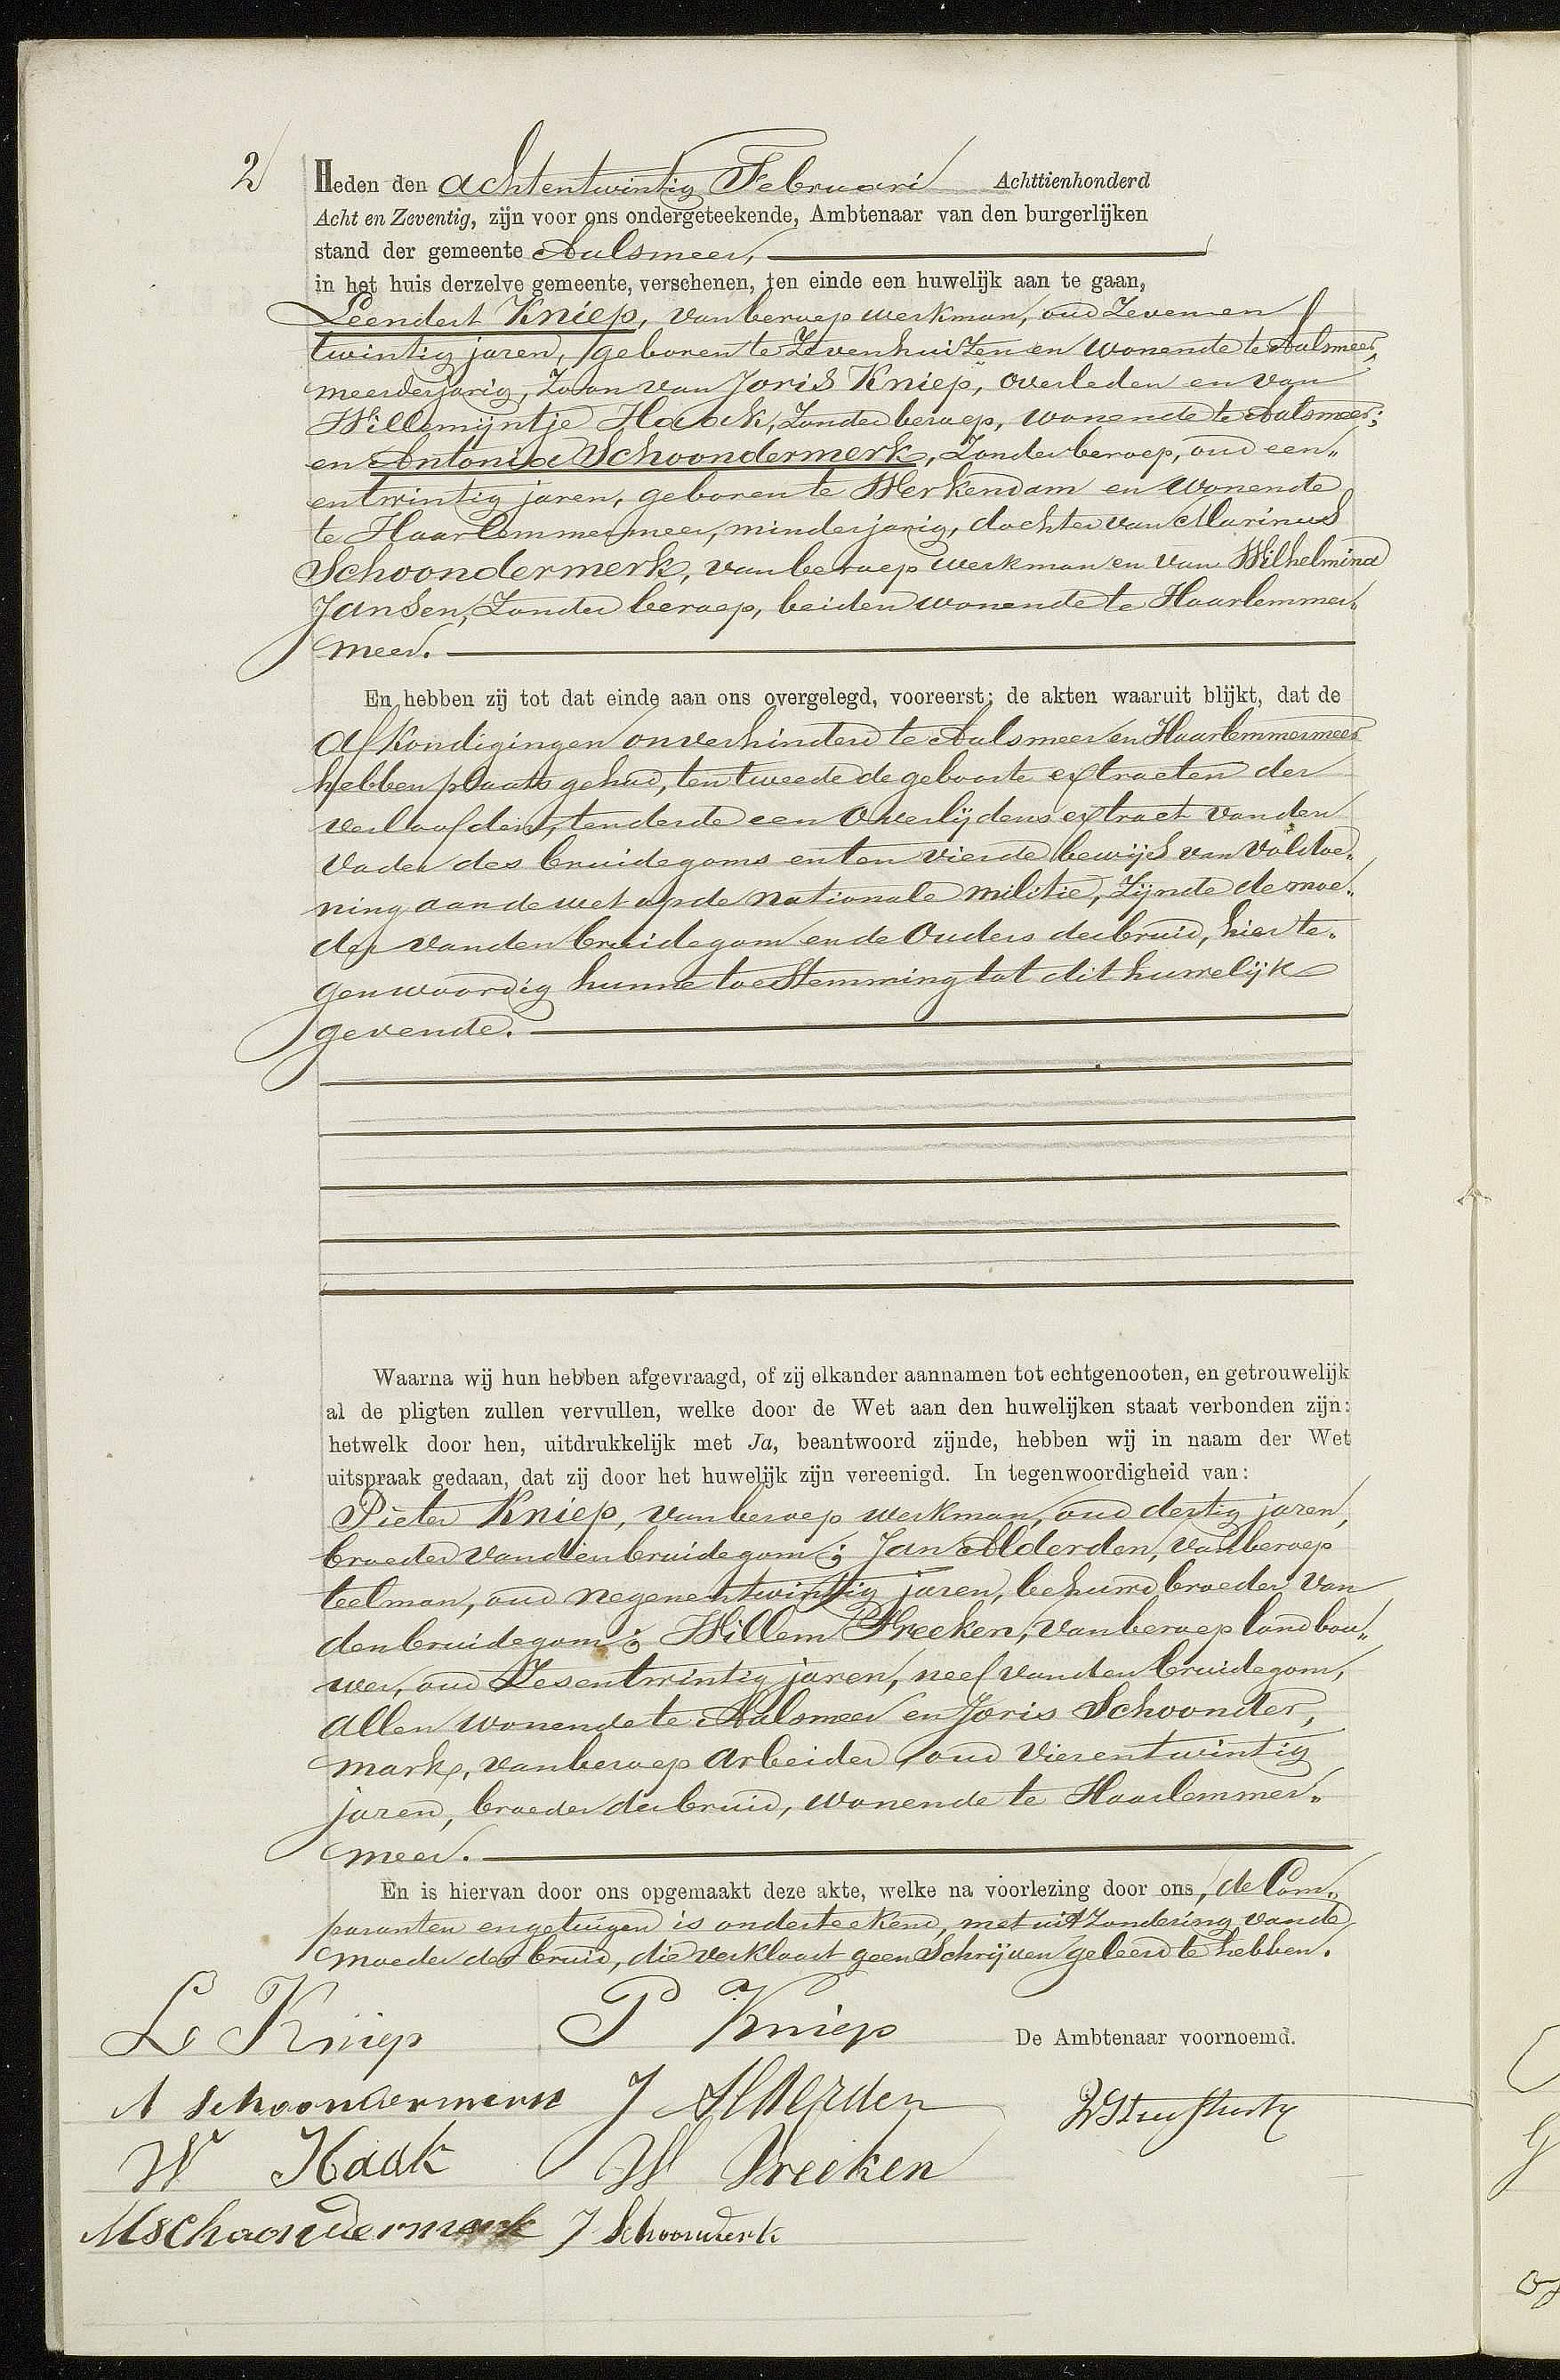 2 Heden den achtentwintig Februari Achttienhonderd
Acht en Zeventig, zijn voor ons ondergeteekende, Ambtenaar van den burgerlijken
stand der gemeente Aalsmeer,
in het huis derzelve gemeente, verschenen, ten einde een huwelijk aan te gaan,
Leendert Kniep, van beroep werkman, oud Zevenen
twintig jaren, geboren te Zevenhuizen en wonende te Aalsmeer,
meerderjarig, Zoon van Joris Kniep, overleden en van
Willemijntje Haack, Zonder beroep, wonende te Aalsmeer;
en Antonia Schoondermerk, Zonder beroep, oud een„
entwintig jaren, geboren te Werkendam en wonende
te Haarlemmermeer, minderjarig, dochter van Marinus
Schoondermerk, van beroep werkman en van Wilhelmina
Jansen, Zonder beroep, beiden wonende te Haarlemmer„
meer.
En hebben zij tot dat einde aan ons overgelegd, vooreerst; de akten waaruit blijkt, dat de
afkondigingen onverhinderd te Aalsmeer en Haarlemmermeer
hebben plaats gehad, ten tweede de geboorte extracten der
verloofden, ten derde een Overlijdens extract van den
Vader des bruidegoms en ten vierde bewijs van Voldoe„
ning aan de wet op de nationale militie, Zijnde de moe„
der van den bruidegom en de Ouders der bruid, hier te„
genwoordig hunne toestemming tot dit huwelijk
gevende.
Waarna wij hun hebben afgevraagd, of zij elkander aannamen tot echtgenooten, en getrouwelijk
al de pligten zullen vervullen, welke door de Wet aan den huwelijken staat verbonden zijn:
hetwelk door hen, uitdrukkelijk met Ja, beantwoord zijnde, hebben wij in naam der Wet
uitspraak gedaan, dat zij door het huwelijk zijn vereenigd. In tegenwoordigheid van:
Pieter Kniep, van beroep werkman, oud dertig jaren,
broeder van den bruidegom; Jan Alderden, van beroep
teelman, oud negenentwintig jaren, behuwd broeder van
den bruidegom; Willem Vreeken, van beroep landbou„
wer, oud Zesentwintig jaren, neef van den bruidegom,
allen wonende te Aalsmeer en Joris Schoonder„
mark, van beroep arbeider, oud Vierentwintig
jaren, broeder der bruid, wonende te Haarlemmer„
meer.
En is hiervan door ons opgemaakt deze akte, welke na voorlezing door ons, de Com„
paranten en getuigen is onderteekend, met uitzondering van de
moeder der bruid, die verklaart geen Schrijven geleerd te hebben.
L Kniep P Kniep De Ambtenaar voornoemd.
A schoondermerk J Alderden
W Haak W Vreeken
M schoondermerk J Schoonderk